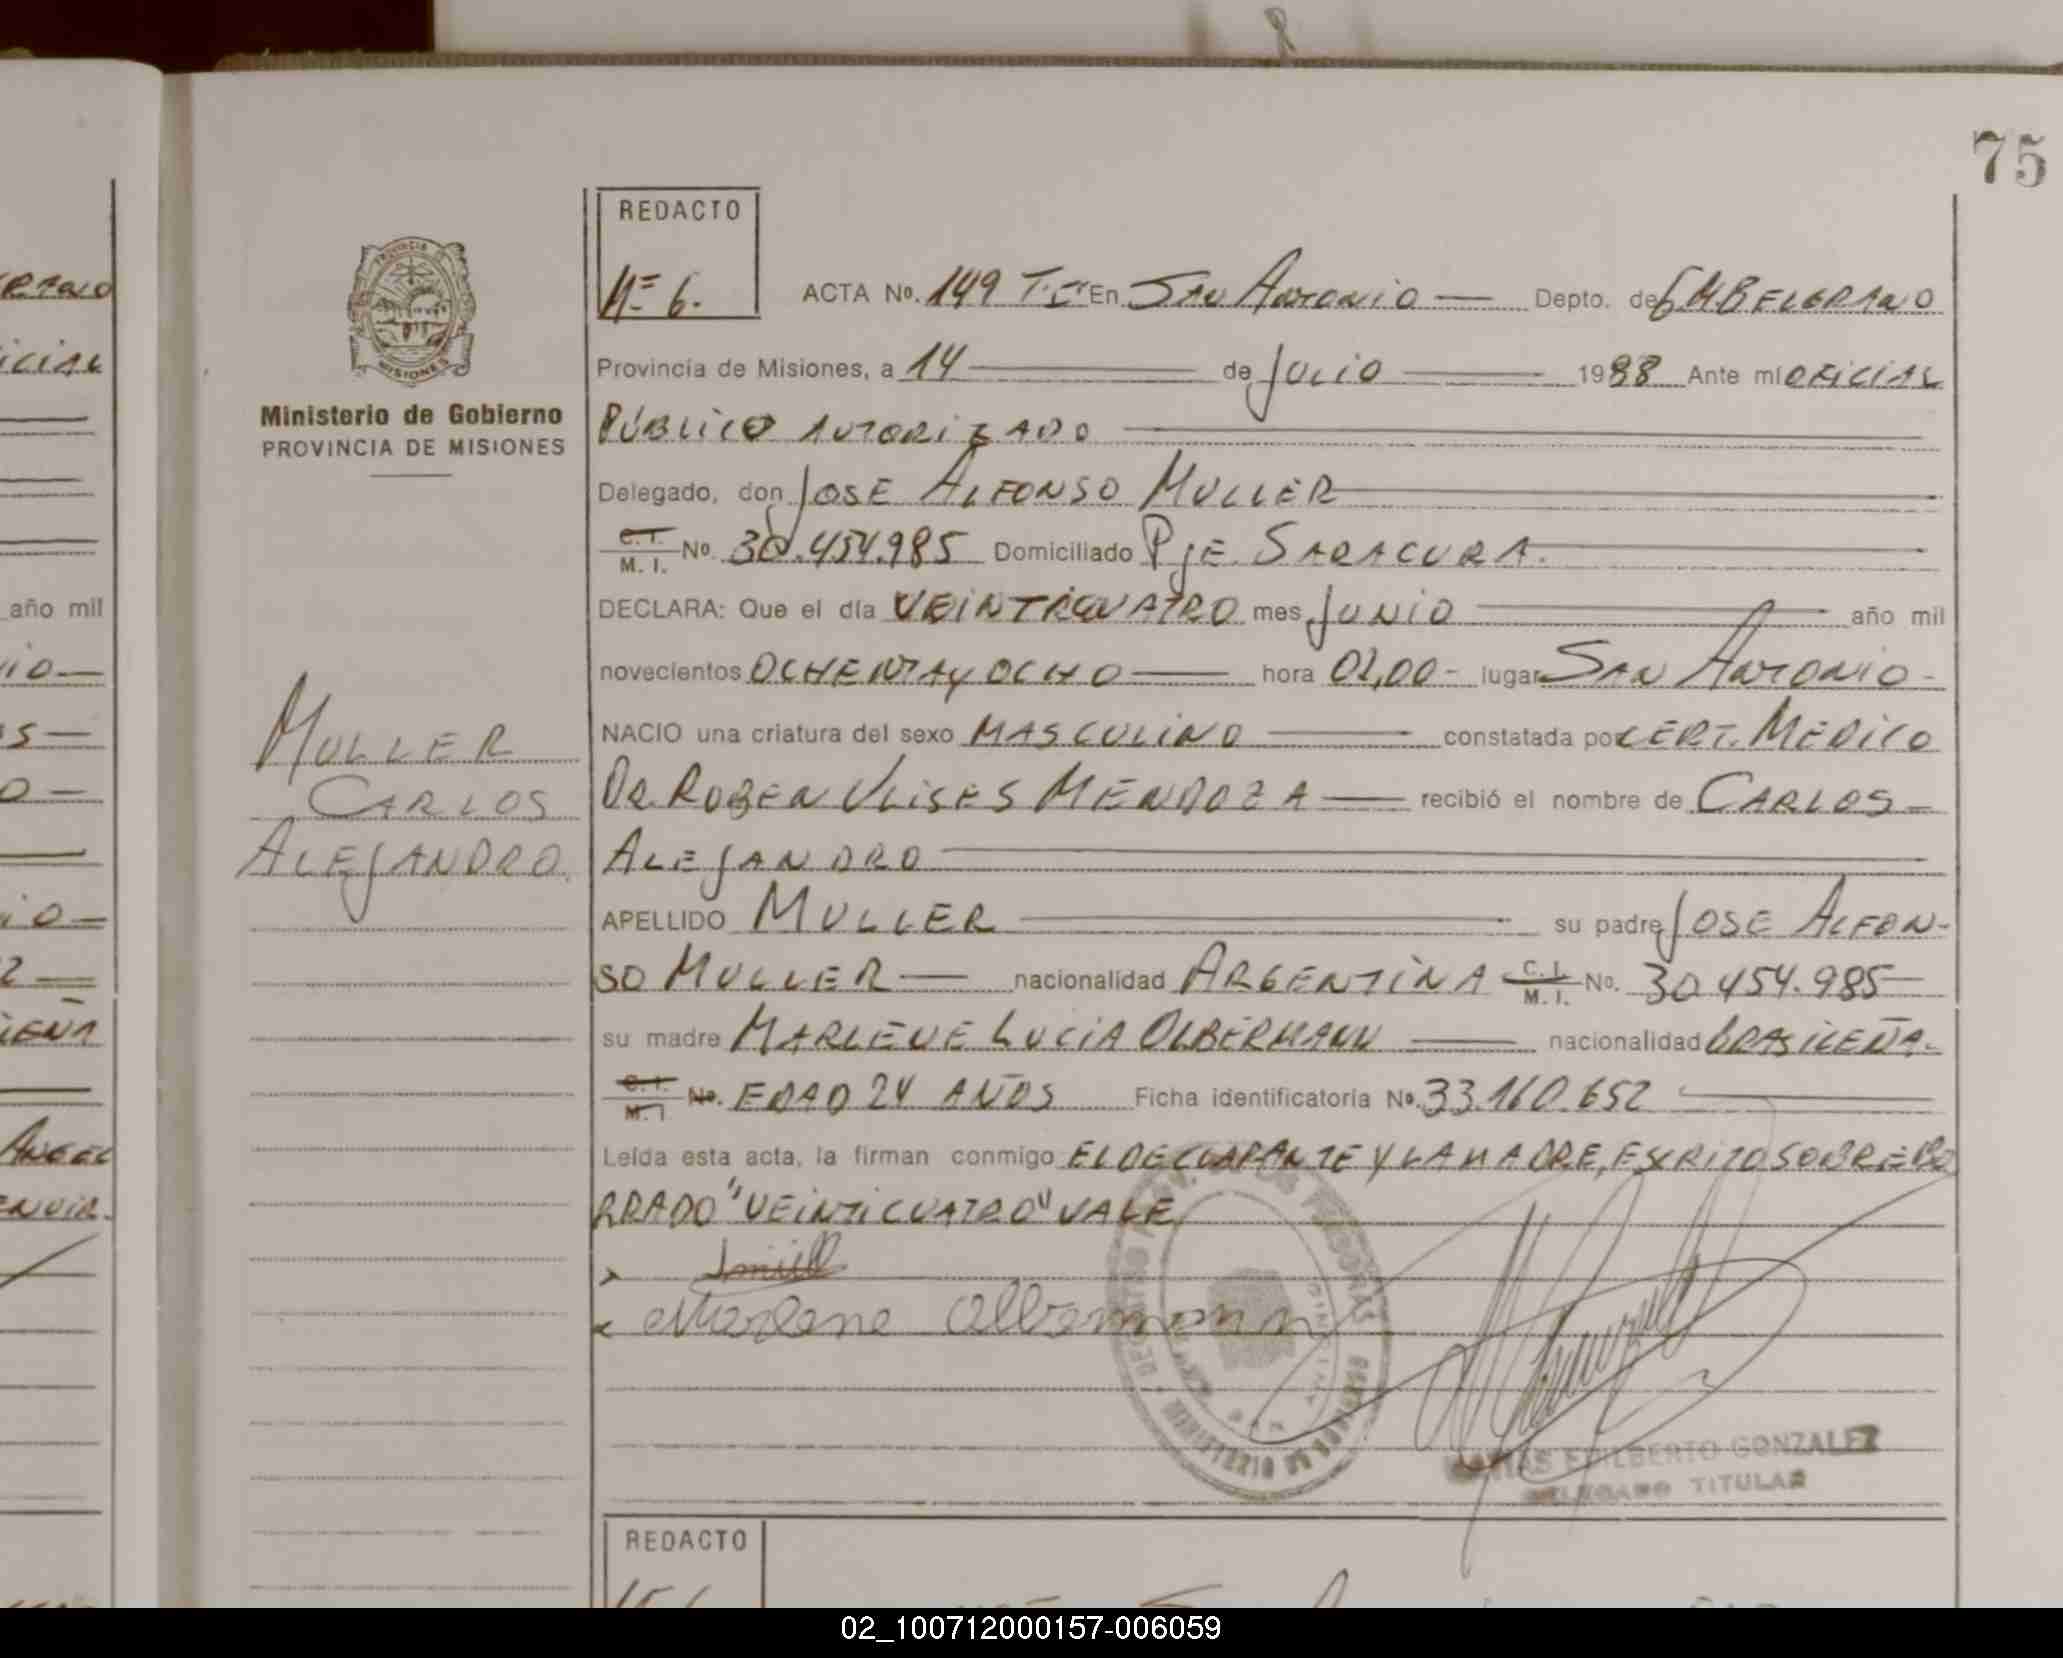 75
REDACTO
Nº 6.
PROVINCIA
MISIONES
Ministerio de Gobierno
PROVINCIA DE MISIONES
ACTA No. 149 En SAN ANTONIO Depto. de G M BELGRANO
Provincia de Misiones, a 14 de JULIO 1988 Ante mi OFICIAL
PÚBLICO AUTORIZADO
Delegado, don JOSE ALFONSO MULLER
C. I. M. I. No. 30.454.985 Domiciliado PJE. SARACURA.
DECLARA: Que el día VEINTICUATRO mes JUNIO año mil
novecientos OCHENTA y OCHO hora 02,00 - lugar SAN ANTONIO -
NACIO una criatura del sexo MASCULINO constatada por CERT. MEDICO
DR. RUBEN ULISES MENDOZA recibió el nombre de CARLOS -
ALEJANDRO
APELLIDO MULLER su padre JOSE ALFON-
SO MULLER nacionalidad ARGENTINA C. I. M. I. No. 30.454.985
su madre MARLENE LUCIA OLBERMANN nacionalidad BRASILEÑA.
C. I. M. I. No. EDAD 24 AÑOS Ficha identificatoria No. 33.160.652
Leída esta acta, la firman conmigo EL DECLARANTE Y LA MADRE, ESCRITO SOBRE BO
RRADO "VEINTICUATRO" VALE
Marlene Olbermann
MULLER
CARLOS
ALEJANDRO.
MINISTERIO DE GOBIERNO
MATIAS EDILBERTO GONZALEZ
DELEGADO TITULAR
REDACTO
año mil
02_100712000157-006059